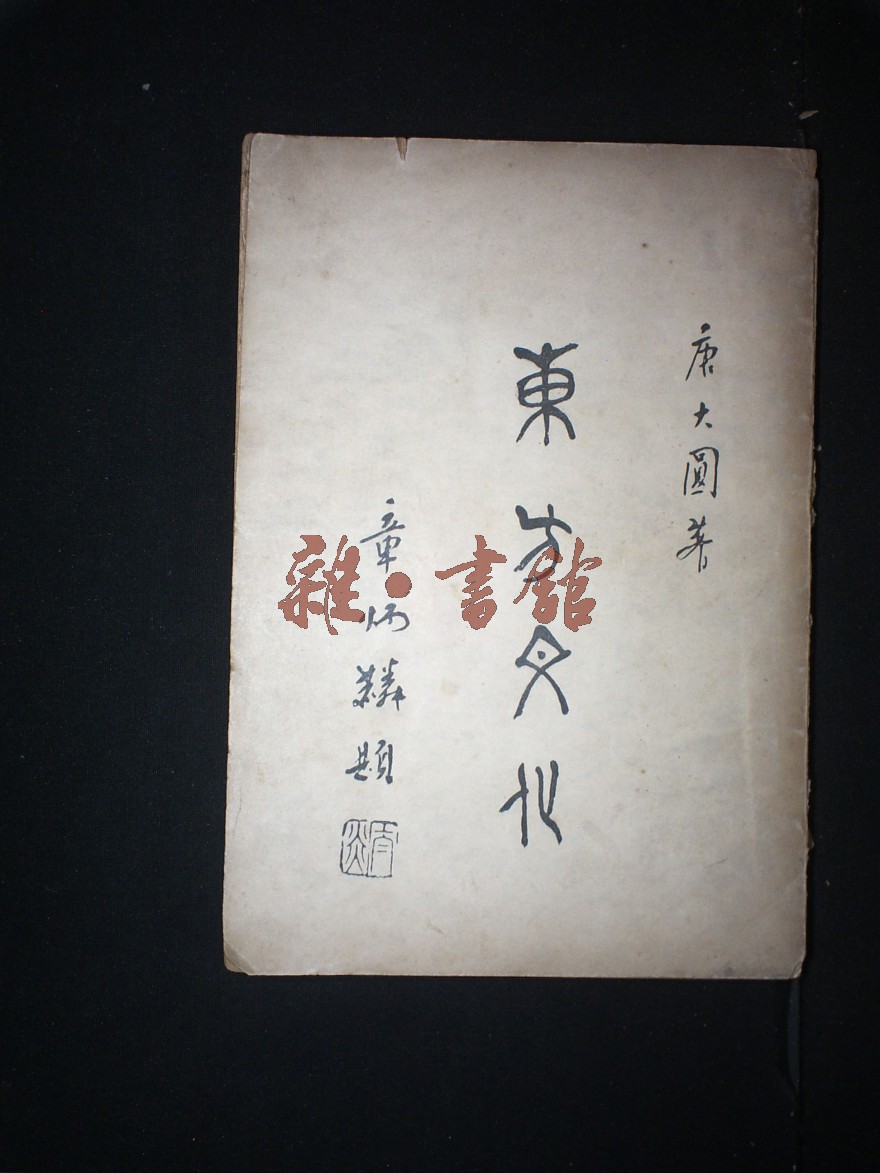 唐大圓著
東方文化
章炳麟題
雜·書館